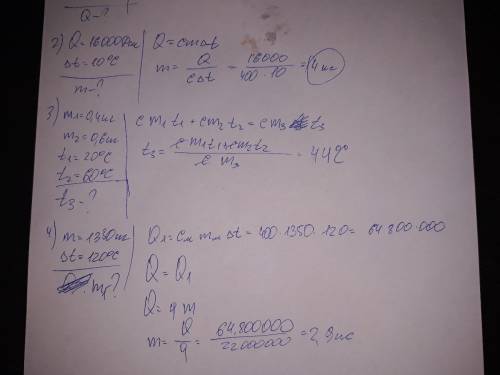 Q-?
2) Q=16000Дж
Δt=10°C
m-?
Q=cmΔt
m= Q/cΔt = 16000/400·10 = 4 кг
3) m1=0,4кг
m2=0,6кг
t1=20°C
t2=60°C
t3-?
cm1t1+cm2t2=cm3t3
t3= cm1t1+cm2t2/cm3 = 44°
4) m=1350кг
Δt=120°C
mг?
Q1=cм mм Δt=400·1350·120= 64 800 000
Q=Q1
Q=qm
m= Q/q = 64,800000/22000000 =2,9кг